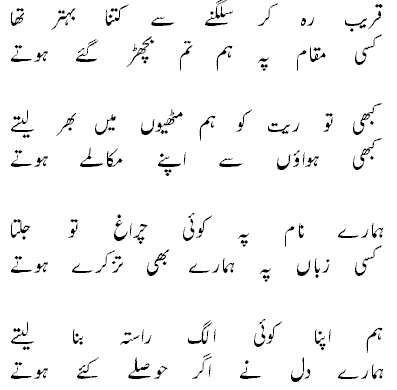 قریب رہ کر سلگنے سے کتنا بہتر تھا
کسی مقام پہ ہم تم بچھڑ گئے ہوتے
کبھی تو ریت کو ہم مٹھیوں میں بھر لیتے
کبھی ہواؤں سے اپنے مکالمے ہوتے
ہمارے نام پہ کوئی چراغ تو جلتا
کسی زباں پہ ہمارے بھی تزکرے ہوتے
ہم اپنا کوئی الگ راستہ بنا لیتے
ہمارے دل نے اگر حوصلے کئے ہوتے